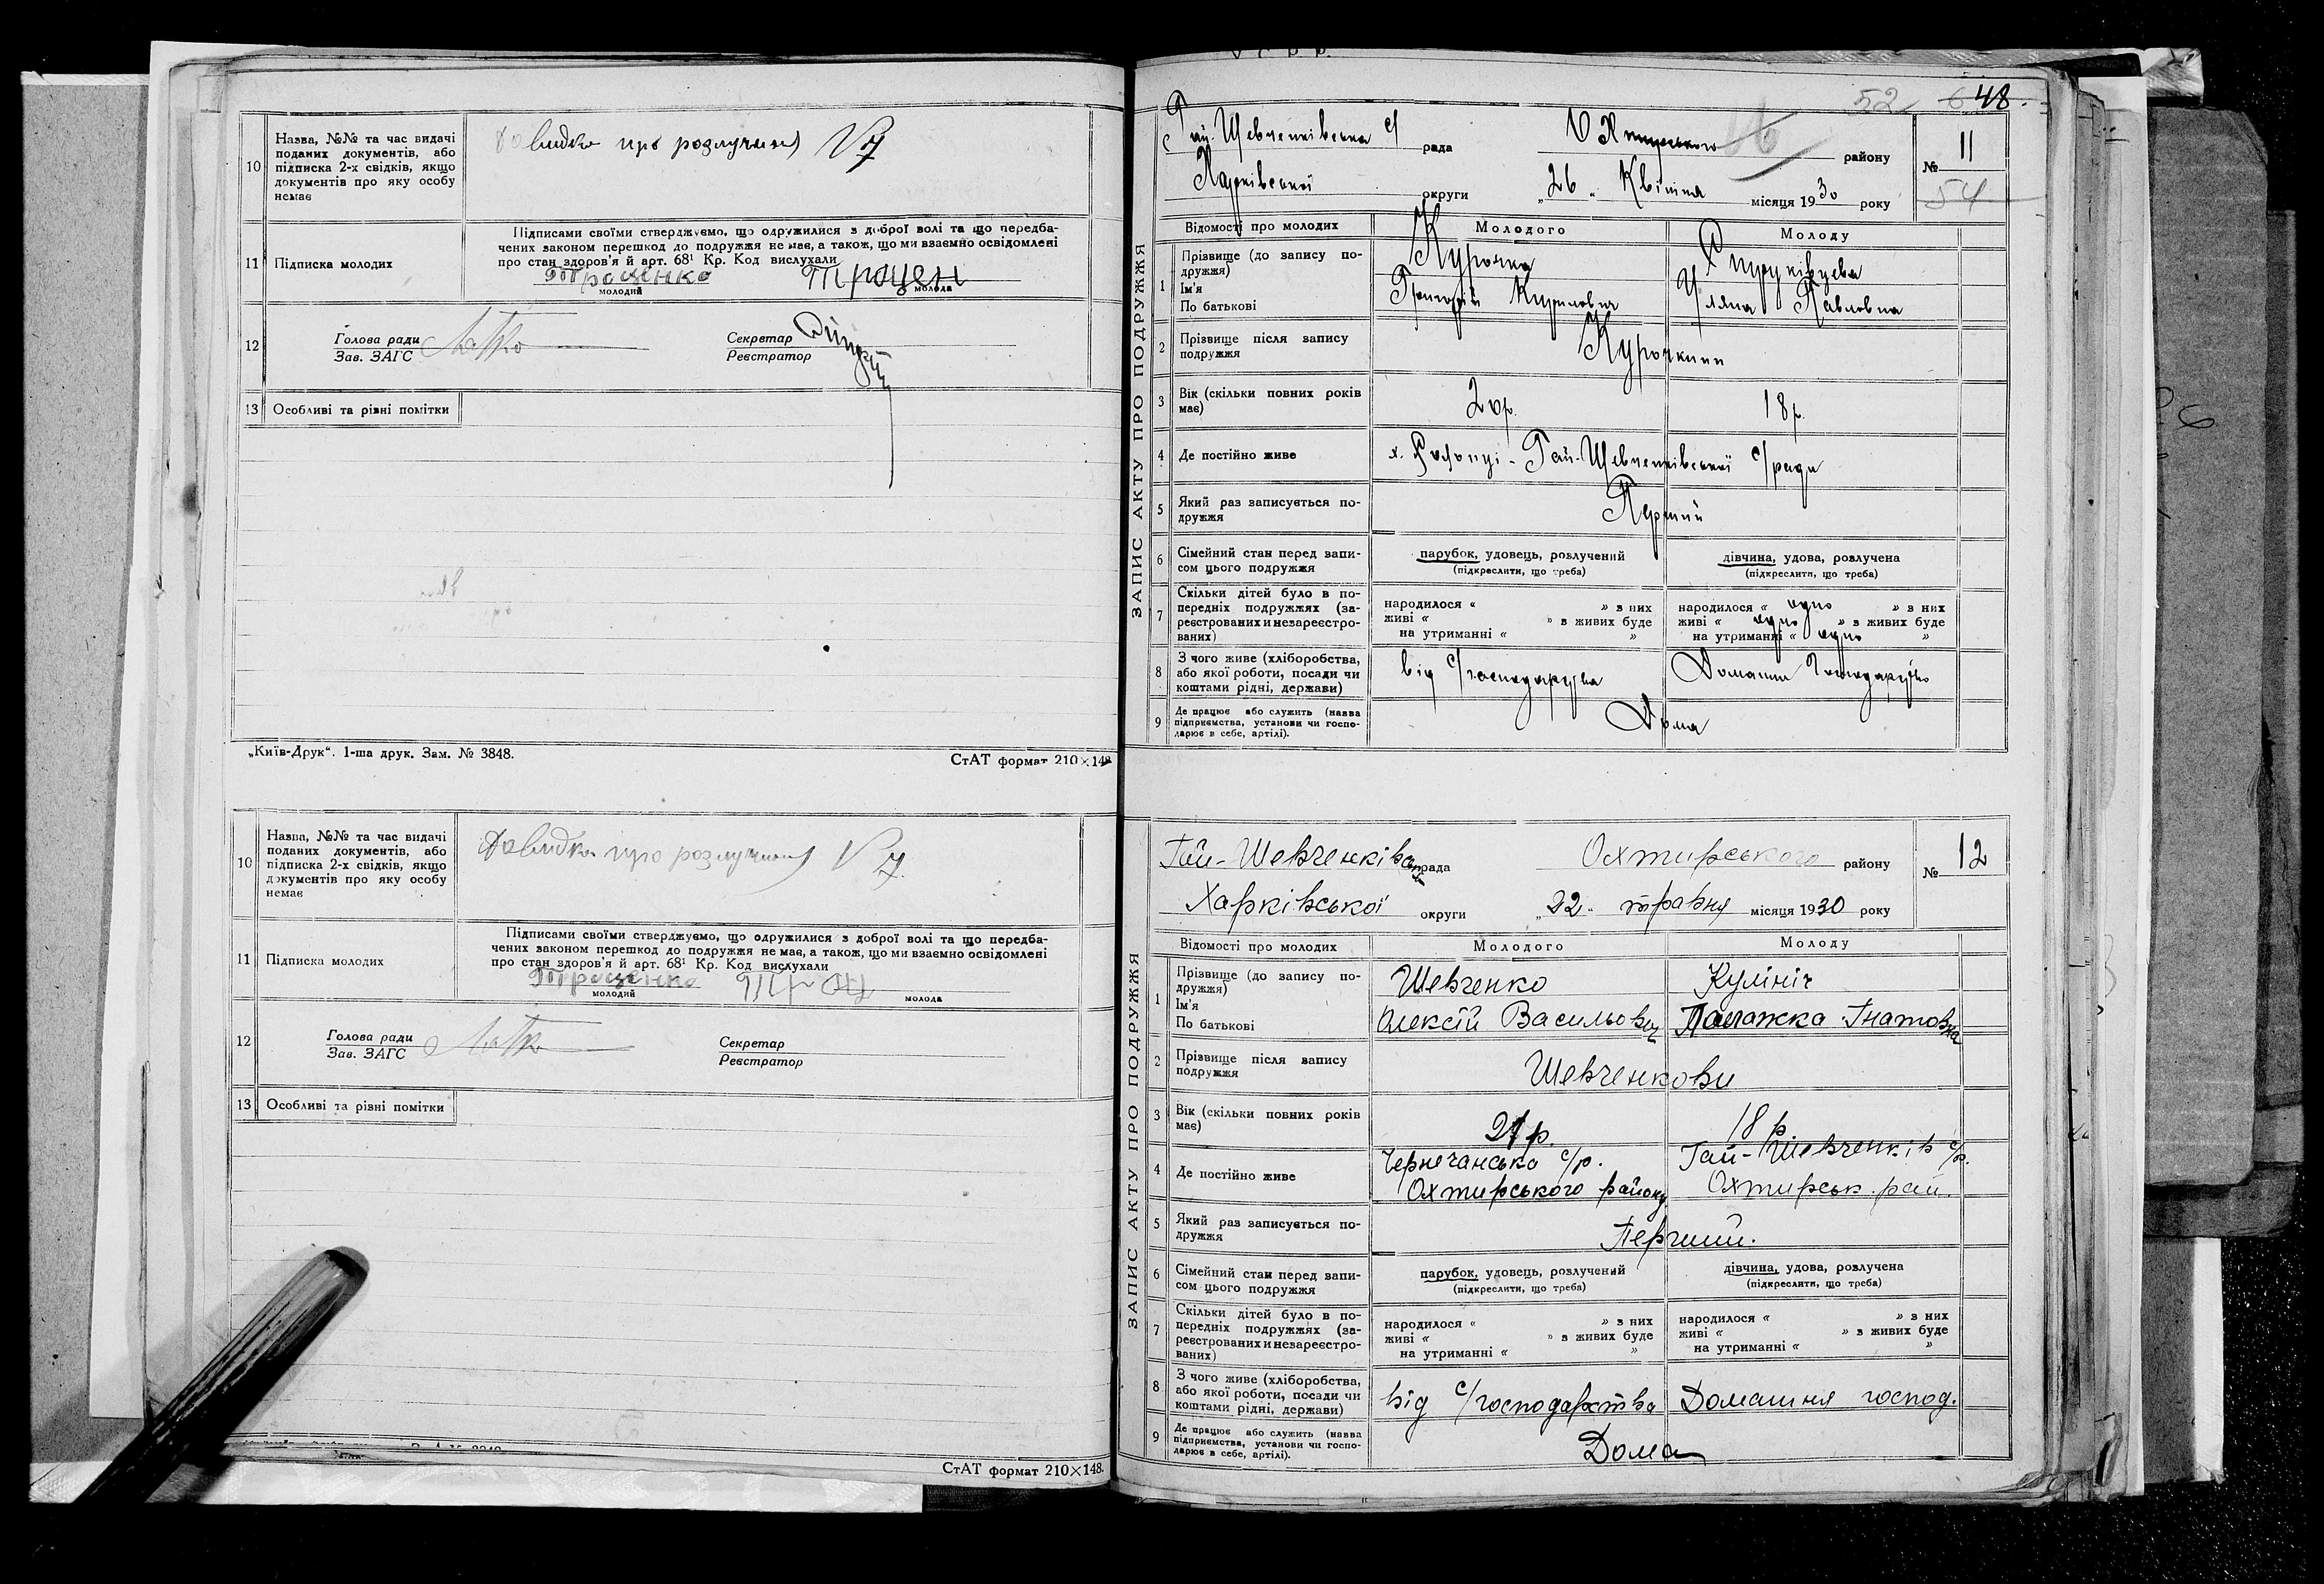 10 Назва, №№ та час видачі
поданих документів, або
підписка 2-х свідків, якщо
документів про яку особу
немає
Довидка про розлучиня №7
11 Підписка молодих
Підписами своїми стверджуємо, що одружилися з доброї волі та що передба-
чених законом перешкод до подружжя не має, а також, що ми взаємно освідомлені
про стан здоров'я й арт. 68¹ Кр. Код вислухали
Троценко Троцен
молодий молода
12 Голова ради Секретар
Зав. ЗАГС Реєстратор
13 Особливі та різні помітки
„Київ-Друк“. 1-ша друк. Зам. № 3848. СтАТ формат 210×148
10 Назва, №№ та час видачі
поданих документів, або
підписка 2-х свідків, якщо
документів про яку особу
немає
Довидка про розлучиня №7.
11 Підписка молодих
Підписами своїми стверджуємо, що одружилися з доброї волі та що передба-
чених законом перешкод до подружжя не має, а також, що ми взаємно освідомлені
про стан здоров'я й арт. 68¹ Кр. Код вислухали
Троценко
молодий молода
12 Голова ради Секретар
Зав. ЗАГС Реєстратор
13 Особливі та різні помітки
СтАТ формат 210×148.
52 48.
Гай-Шевченківська с/ рада Охтирського району № 11
Харківської округи „26“ Квітня місяця 1930 року 54
ЗАПИС АКТУ ПРО ПОДРУЖЖЯ
Відомості про молодих Молодого Молоду
1 Прізвище (до запису по-
дружжя)
Ім'я
По батькові
Курочка
Григорій Кирилович
Уляна Павловна
2 Прізвище після запису
подружжя
Курочкини
3 Вік (скільки повних років
має)
20р. 18р.
4 Де постійно живе
х. Гай-Шевченківської с/ради
5 Який раз записується по-
дружжя
Перший
6 Сімейний стан перед запи-
сом цього подружжя
парубок, удовець, розлучений дівчина, удова, розлучена
(підкреслити, що треба) (підкреслити, що треба)
7 Скільки дітей було в по-
передніх подружжях (за-
реєстрованих и незареєстро-
ваних)
народилося « » з них
живі « » з живих буде
на утриманні « »
народилося « одно » з них
живі « одно » з живих буде
на утриманні « одно »
8 З чого живе (хліборобства,
або якої роботи, посади чи
коштами рідні, держави)
від с/господарства
Домашн господарство
9 Де працює або служить (назва
підприємства, установи чи госпо-
дарює в себе, артілі).
Дома
Гай-Шевченківська рада Охтирського району № 12
Харківської округи „22“ травня місяця 1930 року
ЗАПИС АКТУ ПРО ПОДРУЖЖЯ
Відомості про молодих Молодого Молоду
1 Прізвище (до запису по-
дружжя)
Ім'я
По батькові
Шевченко Кулініч
Олексій Васильович Палажка Гнатовна
2 Прізвище після запису
подружжя
Шевченкови
3 Вік (скільки повних років
має)
21 р. 18 р
4 Де постійно живе
Чернечанська с/р.
Охтирського району
Гай-Шевченків с/р.
Охтирськ. рай.
5 Який раз записується по-
дружжя
Перший.
6 Сімейний стан перед запи-
сом цього подружжя
парубок, удовець, розлучений дівчина, удова, розлучена
(підкреслити, що треба) (підкреслити, що треба)
7 Скільки дітей було в по-
передніх подружжях (за-
реєстрованих и незареєстро-
ваних)
народилося « » з них
живі « » з живих буде
на утриманні « »
народилося « » з них
живі « » з живих буде
на утриманні « »
8 З чого живе (хліборобства,
або якої роботи, посади чи
коштами рідні, держави)
від с/господарства Домашня господ.
9 Де працює або служить (назва
підприємства, установи чи госпо-
дарює в себе, артілі).
Дома